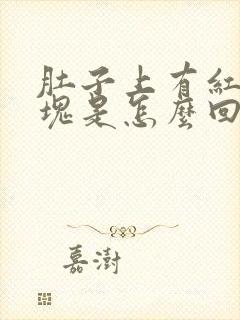 肚子上有紅
塊是怎麼回
嘉澍